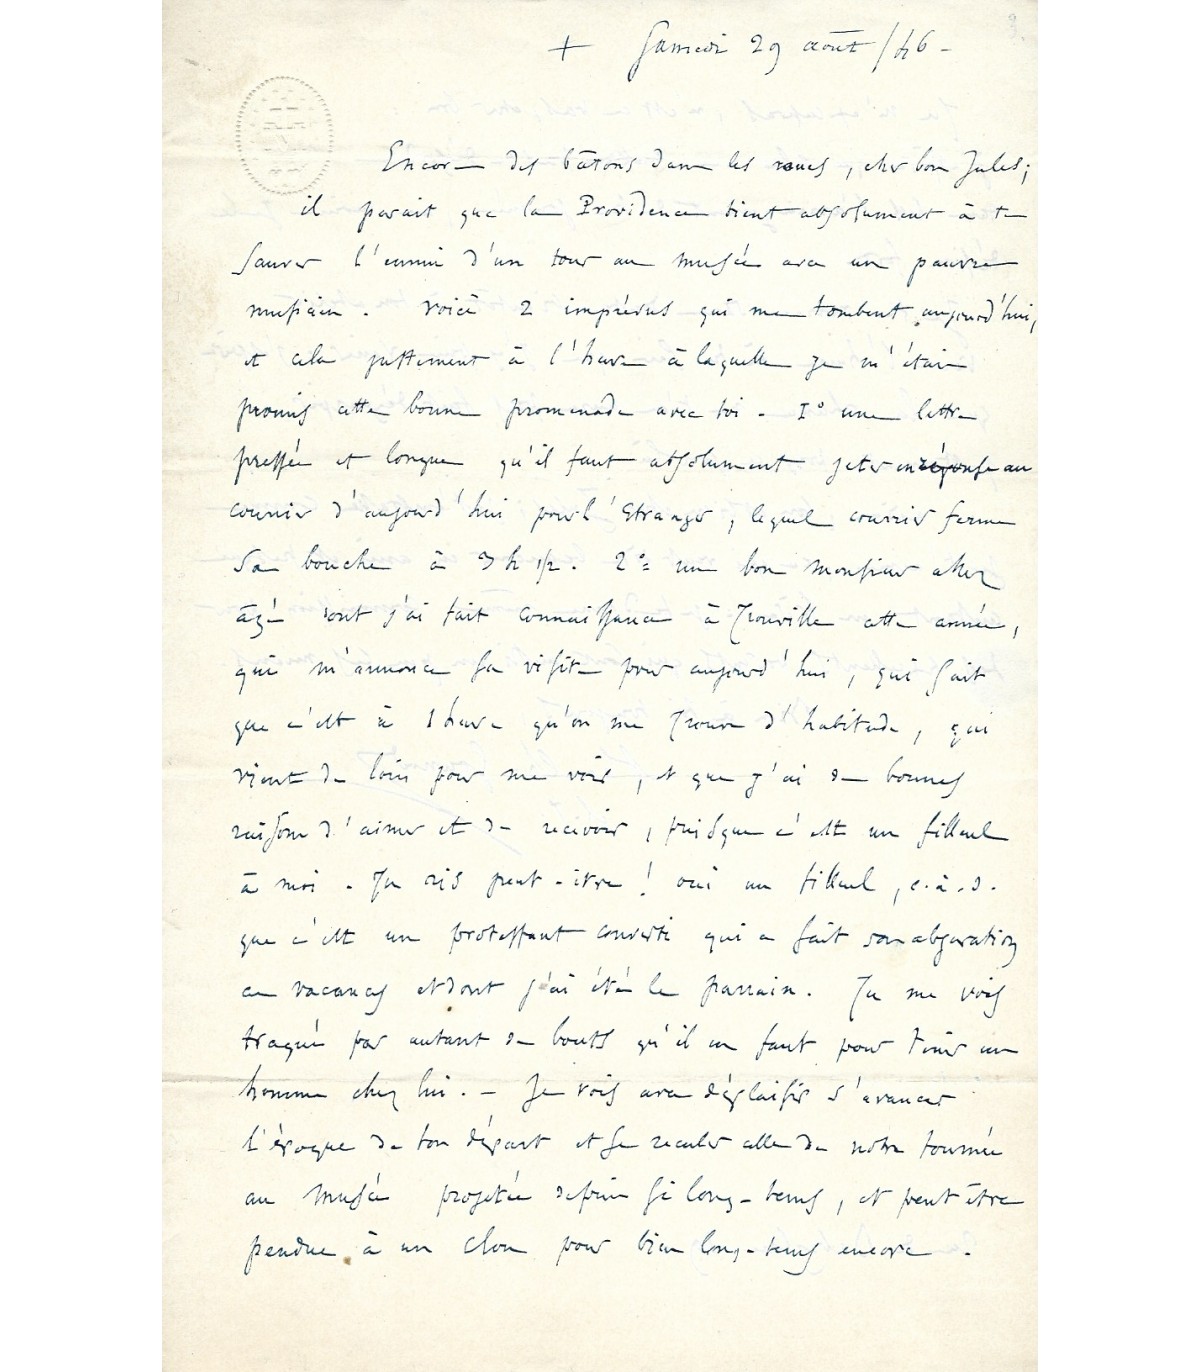 + Samedi 29 août /46 -
Encore des bâtons dans les roues, cher bon Jules;
il parait que la Providence tient absolument à te
sauver l'ennui d'un tour au musée avec un pauvre
musicien. Voici 2 imprévus qui me tombent aujourd'hui,
et cela justement à l'heure à laquelle je m'étais
promis cette bonne promenade avec toi - 1° une lettre
pressée et longue qu'il faut absolument jeter en réponse au
courrier d'aujourd'hui pour l'Etranger, lequel courrier ferme
sa bouche à 3 h 1/2. 2° un bon monsieur assez
âgé dont j'ai fait connaissance à Trouville cette année,
qui m'annonce sa visite pour aujourd'hui, qui sait
que c'est à 1 heure qu'on me trouve d'habitude, qui
vient de loin pour me voir, et que j'ai de bonnes
raisons d'aimer et de recevoir, puisque c'est un filleul
à moi. Tu ris peut-être! oui un filleul, c.à.d.
que c'est un protestant converti qui a fait son abjuration
ces vacances et dont j'ai été le parrain. Tu me vois
traqué par autant de bouts qu'il en faut pour tenir un
homme chez lui. - Je vois avec déplaisir s'avancer
l'époque de ton départ et se reculer celle de notre tournée
au Musée projetée depuis si long-tems, et peut être
pendue à un clou pour bien long-tems encore.